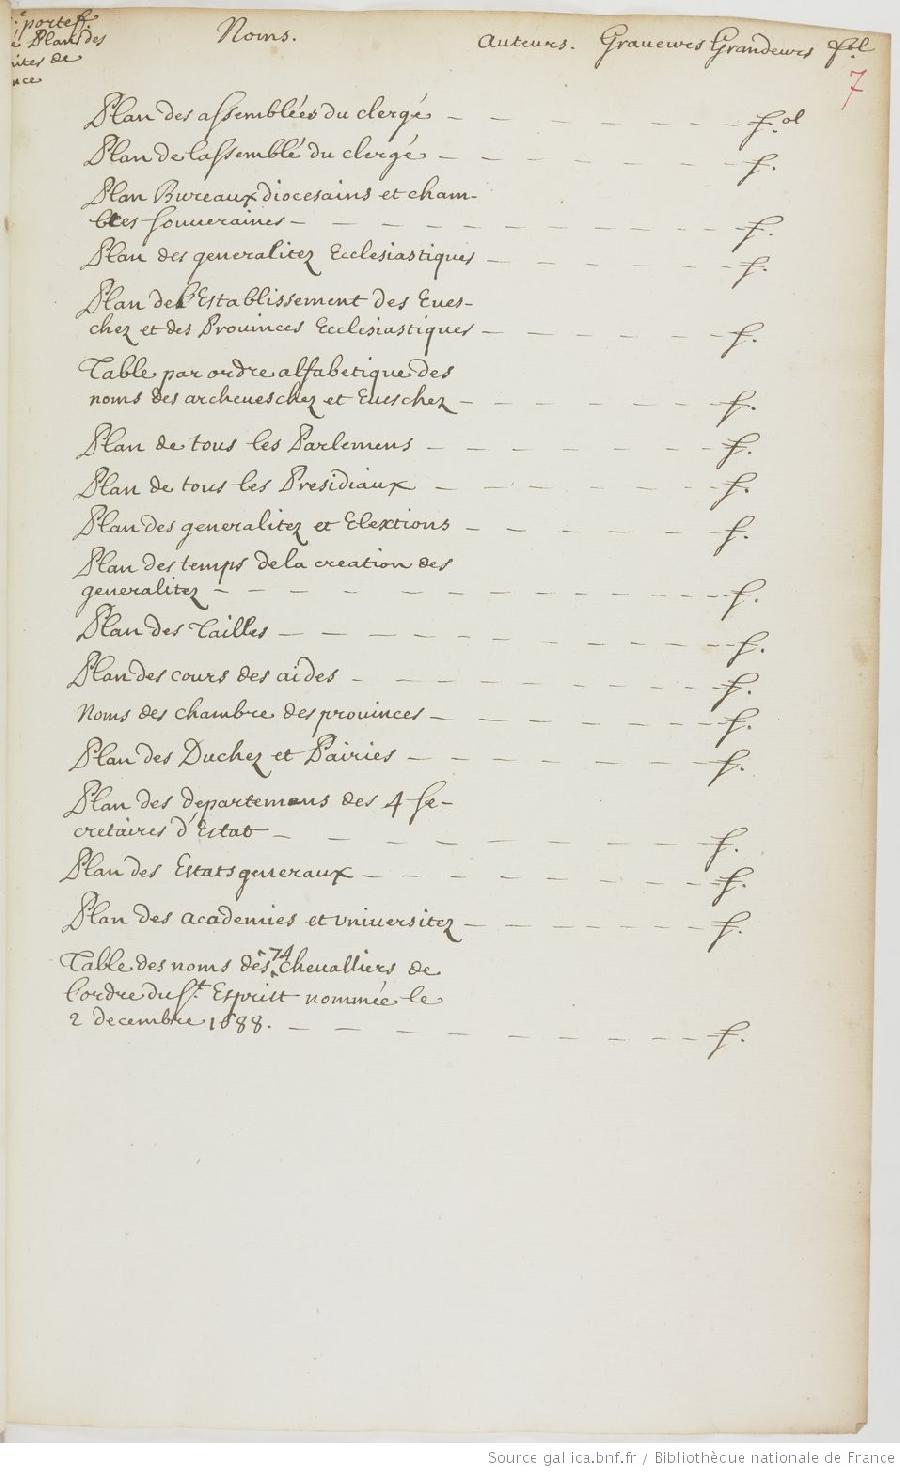 portef.
Plans des
de
Noms. auteurs. Graueurs Grandeurs fol
7
Plan des assemblées du clergé — f.ol
Plan de lassemblé du clergé — f.
Plan Bureaux diocesains et cham-
bres souueraines — f.
Plan des generalitez Ecclesiastiques — f.
Plan de l'Establissement des Eues-
chez et des Prouinces Ecclesiastiques — f.
Table par ordre alfabetique des
noms des archeueschez et Eueschez — f.
Plan de tous les Parlemens — f.
Plan de tous les Presidiaux — f.
Plan des generalitez et Elextions — f.
Plan des temps de la creation des
generalitez — f.
Plan des Tailles — f.
Plan des cours des aides — f.
Noms des chambre des prouinces — f.
Plan des Duchez et Pairies — f.
Plan des departemens des 4 se-
cretaires d'Estat — f.
Plan des Estats generaux — f.
Plan des academies et vniuersitez — f.
Table des noms des 74 cheualliers de
l'ordre du St Espritt nommée le
2 decembre 1688. — f.
Source gallica.bnf.fr / Bibliothèque nationale de France